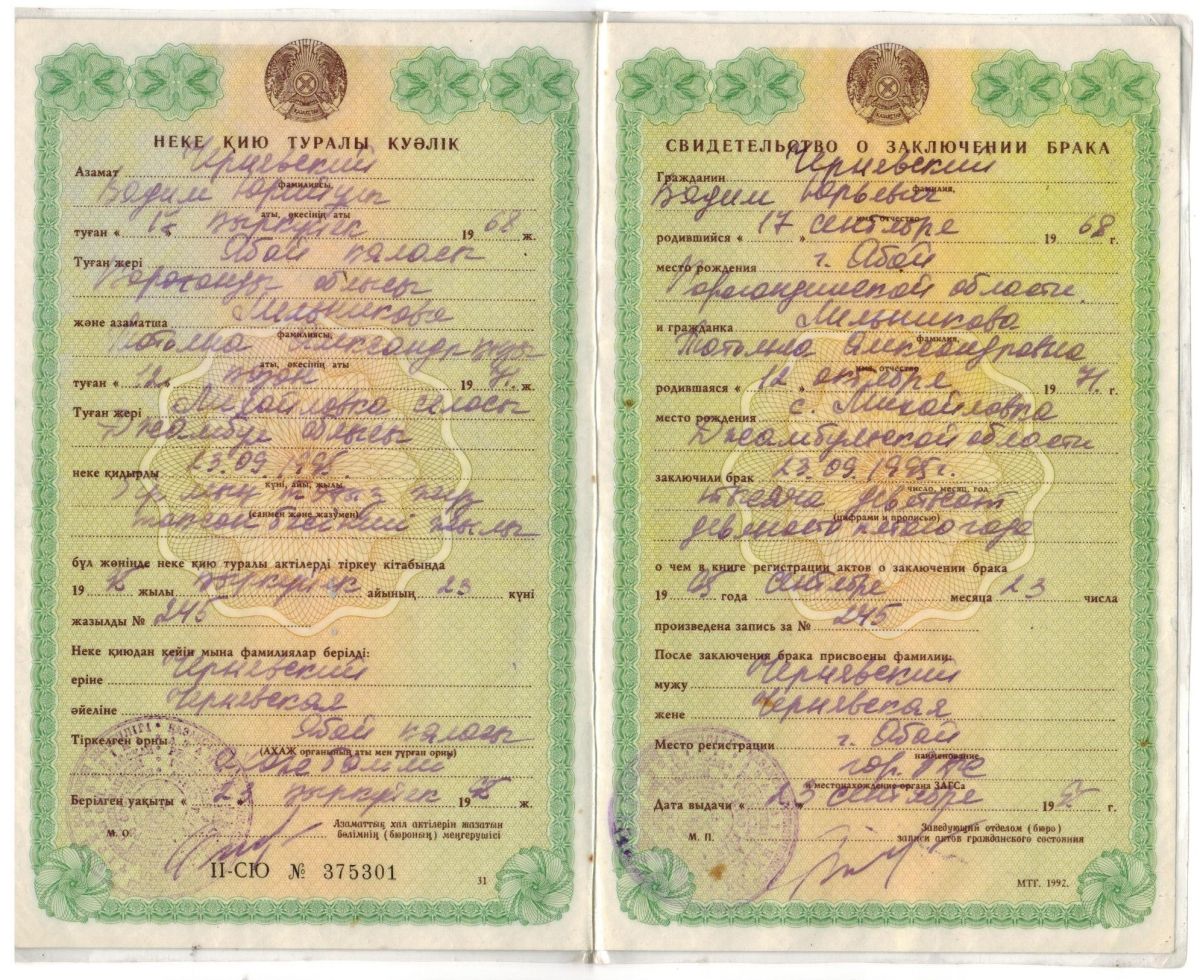 НЕКЕ ҚИЮ ТУРАЛЫ КУӘЛІК
Азамат Чернявский
фамилиясы,
Вадим
аты, әкесінің аты
туған « 17 » қыркүйек 19 68 ж.
Туған жері Абай қаласы
Қарағанды облысы
және азаматша Мельникова
фамилиясы,
Татьяна Александрқызы
аты, әкесінің аты
туған « 12 » қазан 19 71. ж.
Туған жері Михайловка селосы
Джамбул облысы
неке қидырды 23.09.1995
күні, айы, жылы
бір мың тоғыз жүз
(санмен және жазумен)
тоқсан бесінші жылы
бұл жөнінде неке қию туралы актілерді тіркеу кітабында
19 95 жылы қыркүйек айының 23 күні
жазылды № 245
Неке қиюдан кейін мына фамилиялар берілді:
еріне Чернявский
әйеліне Чернявская
Тіркелген орны Абай қаласы
(АХАЖ органының аты мен тұрған орны)
Берілген уақыты « 23 » қыркүйек 19 95 ж.
М. О.
Азаматтық хал актілерін жазатын
бөлімнің (бюроның) меңгерушісі
II-СЮ № 375301
31
СВИДЕТЕЛЬСТВО О ЗАКЛЮЧЕНИИ БРАКА
Гражданин Чернявский
фамилия,
Вадим Юрьевич
имя, отчество
родившийся « 17 » сентября 19 68 г.
место рождения г. Абай
Карагандинской области.
и гражданка Мельникова
фамилия,
Татьяна Александровна
имя, отчество
родившаяся « 12 » октября 19 71. г.
место рождения с. Михайловка
Джамбульской области
заключили брак 23.09.1995г.
число, месяц, год
тысяча девятьсот
(цифрами и прописью)
девяносто пятого года
о чем в книге регистрации актов о заключении брака
19 95 года сентября месяца 23 числа
произведена запись за № 245
После заключения брака присвоены фамилии:
мужу Чернявский
жене Чернявская
Место регистрации г. Абай
наименование
гор.
и местонахождение органа ЗАГСа
Дата выдачи « 23 » сентября 19 95 г.
М. П.
Заведующий отделом (бюро)
записи актов гражданского состояния
МТГ. 1992.